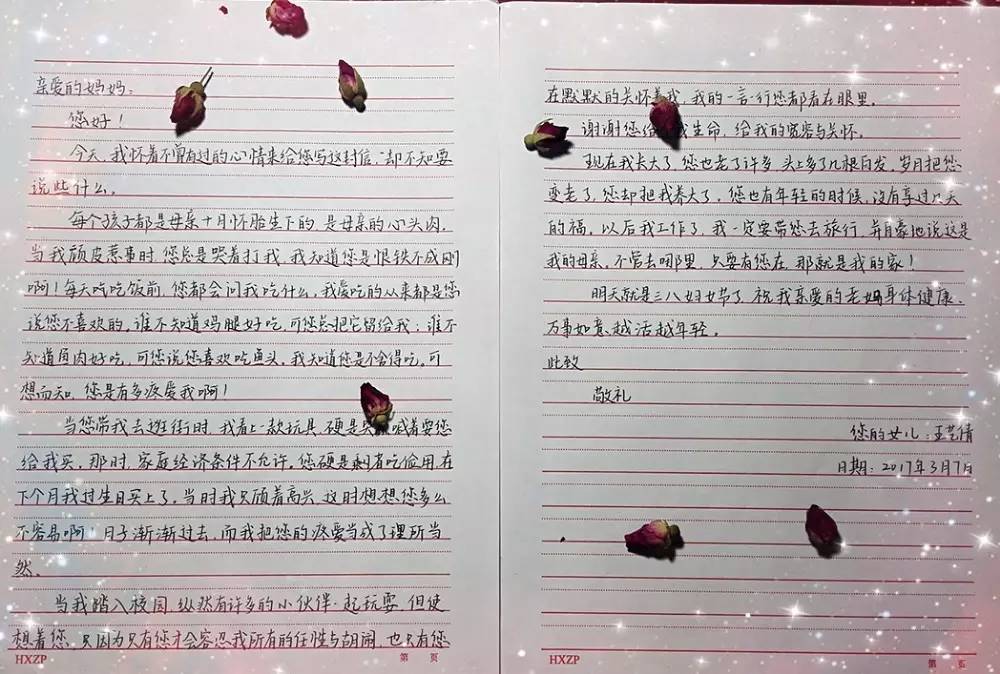 亲爱的妈妈:
您好!
今天,我怀着不曾有过的心情来给您写这封信,却不知要
说些什么。
每个孩子都是母亲十月怀胎生下的,是母亲的心头肉,
当我顽皮惹事时,您总是哭着打我,我知道您是恨铁不成刚
啊!每天吃吃饭前,您都会问我吃什么,我爱吃的从来都是您
说您不喜欢的,谁不知道鸡腿好吃,可您总把它留给我;谁不
知道鱼肉好吃,可您说您喜欢吃鱼头,我知道您是不舍得吃。可
想而知,您是有多疼爱我啊!
当您带我去逛街时,我看上一款玩具,硬是哭 喊着要您
给我买,那时,家庭经济条件不允许。您硬是剩省吃俭用,在
下个月我过生日买上了,当时我只顾着高兴,这时想想您多么
不容易啊!日子渐渐过去,而我把您的疼爱当成了理所当
然。
当我踏入校园,纵然有许多的小伙伴一起玩耍,但使
想着您,只因为只有您才会容忍我所有的任性与胡闹,也只有您
HXZP
第 页
在默默的关怀着我,我的一言一行您都看在眼里。
谢谢您给 我生命,给我的宽容与关怀。
现在我长大了,您也老了许多,头上多了几根白发,岁月把您
变老了,您却把我养大了,您也有年轻的时候,没有享过几天
的福,以后我工作了,我一定要带您去旅行,并自豪地说这是
我的母亲,不管去哪里,只要有您在,那就是我的家!
明天就是三八妇女节了,祝我亲爱的老妈身体健康、
万事如意、越活越年轻。
此致
敬礼
您的女儿:王艺倩
日期:2017年3月7日
HXZP
第 页